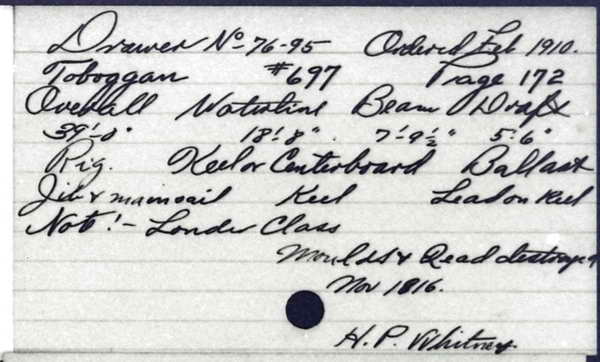 Drawer No 76-95 Ordered Feb 1910.
Toboggan #697 Page 172
Overall Waterline Beam Draft
39'-0" 18'-8" 7'-9½" 5'-6"
Rig. Keel or Centerboard Ballast
Jib & mainsail Keel Lead on Keel
Note!- Sonder Class
Moulds & destroyed
Nov 1816.
H. P. Whitney.